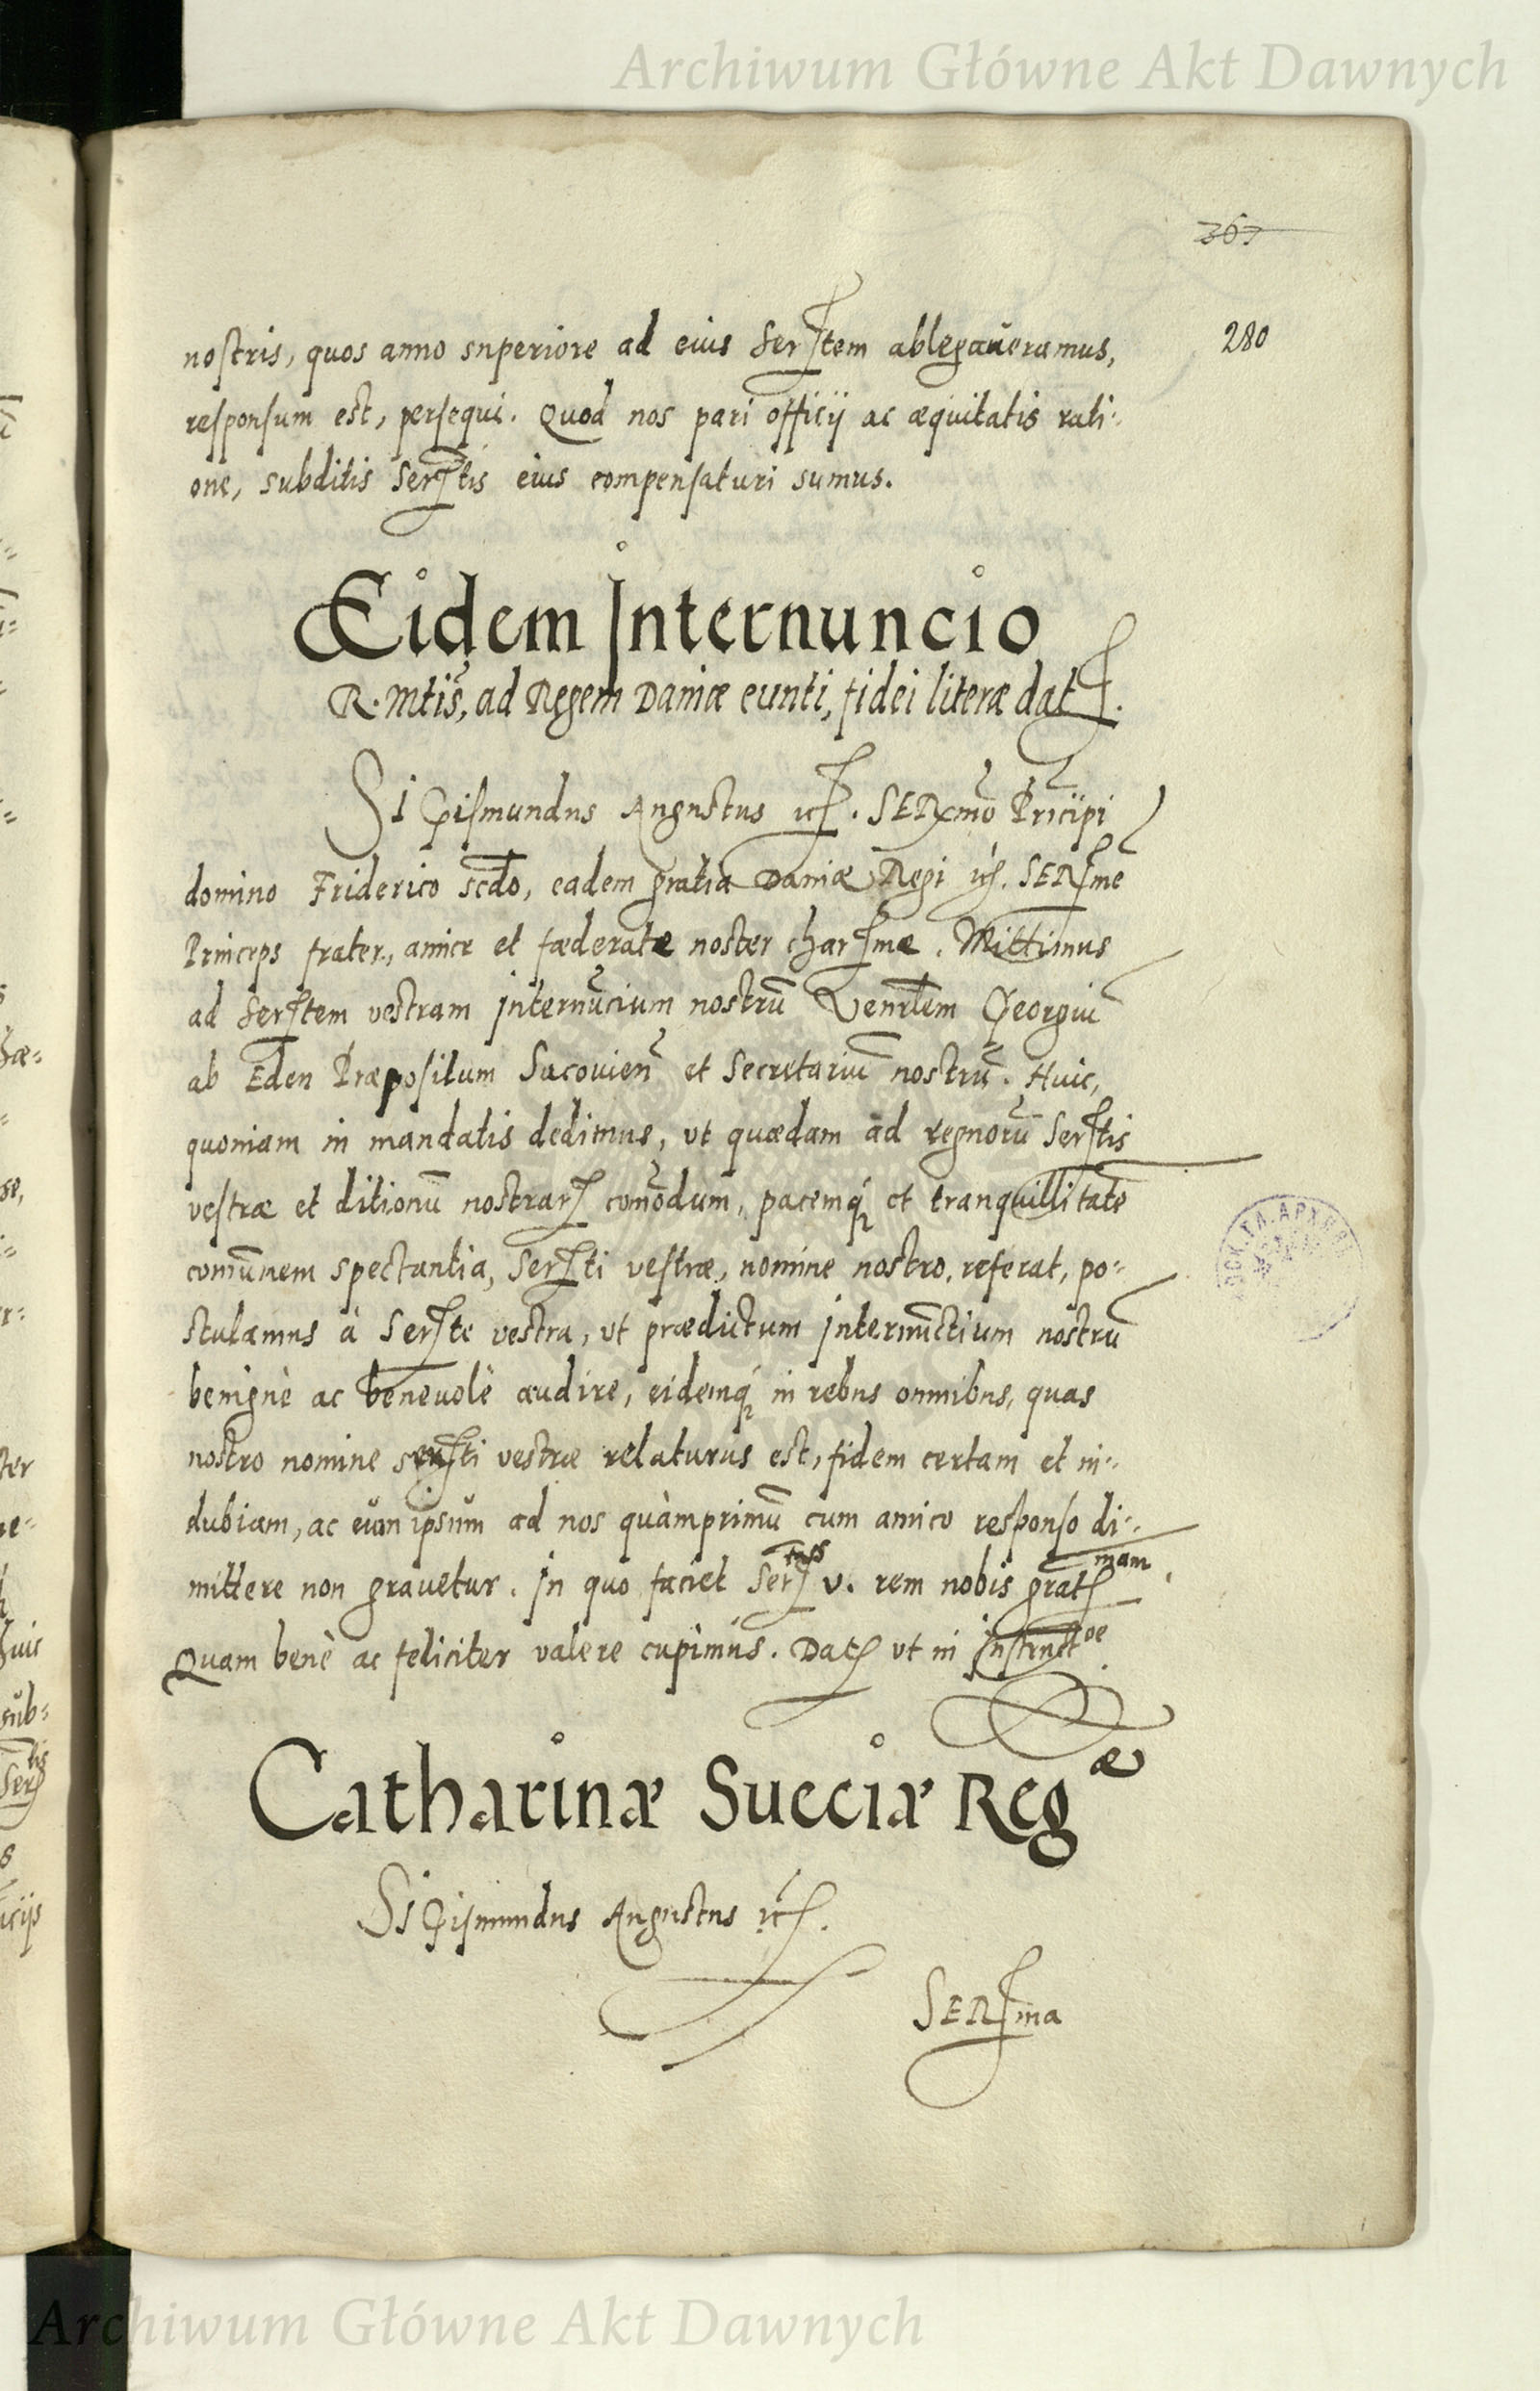 Archiwum Główne Akt Dawnych
367
280
nostris, quos anno superiore ad eius Sertem ablegaueramus,
responsum est, persequi. Quod nos pari officij ac æquitatis rati:
one, subditis Sertis eius compensaturi sumus.
Eidem Internuncio
R. Mtis, ad Regem Daniæ eunti, fidei literæ dat.
Sigismundus Augustus etc. SERmo Principi
domino Friderico scdo, eadem gratia Daniæ Regi etc. SERme
Princeps frater, amice et fæderate noster charme. Mittimus
ad Sertem vestram internucium nostrū Venrlem Georgiū
ab Eden Præpositum Sacouien et Secretariū nostrū. Huic,
quoniam in mandatis dedimus, vt quædam ad regnorū Sertis
vestræ et ditionū nostrar comodum, pacemq et tranquillitatē
comunem spectantia, Serti vestræ, nomine nostro, referat, po:
stulamus à Serte vestra, vt prædictum internunctium nostrū
benignè ac beneuolè audire, eidemq in rebus omnibus, quas
nostro nomine serti vestræ relaturus est, fidem certam et in:
dubiam, ac eum ipsum ad nos quàmprimū cum amico responso di:
mittere non grauetur. In quo faciet Sertas v. rem nobis gratmam.
Quam benè ac feliciter valere cupimus. Dat vt in Instructoe.
Catharinæ Sueciæ Regæ
Sigismundus Augustus etc.
SERma
Archiwum Główne Akt Dawnych